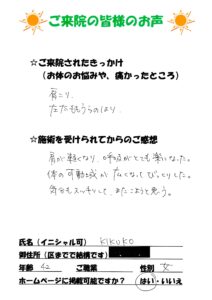 ご来院の皆様のお声
☆ご来院されたきっかけ
（お体のお悩みや、痛かったところ）
肩こり
☆施術を受けられてからのご感想
肩が軽くなり、呼吸がとても楽になった。
体の可動域が広くなってびっくりした。
気分もスッキリして、またこようと思う。
氏名（イニシャル可） KIKUKO
御住所（区までで結構です）
年齢 42 ご職業 性別 女
ホームページに掲載可能ですか？ はい・いいえ